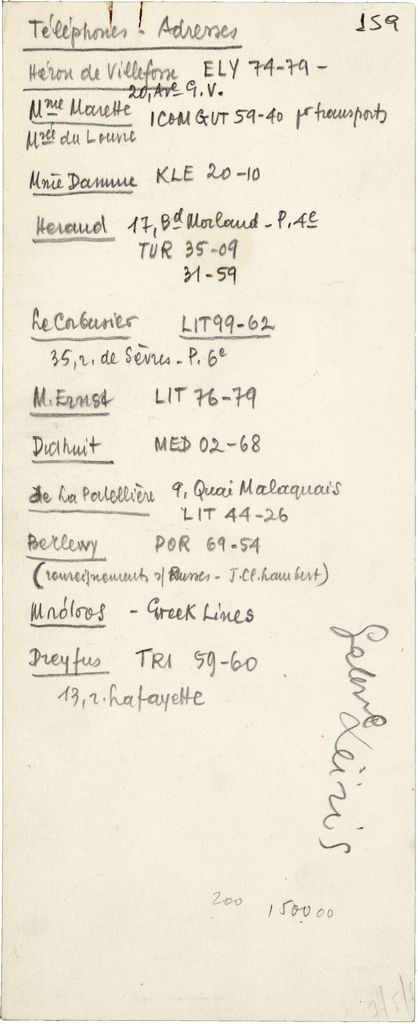 159
Téléphones - Adresses
Héron de Villefosse ELY 74-79 -
20, Ave G. V.
Mme Marette ICOM GUT 59-40 pr transports
Mzée du Louvre
Mme Damme KLE 20-10
Heraud 17, Bd Morland - P. 4e
TUR 35-09
31-59
Le Corbusier LIT 99-62
35, r. de Sèvres - P. 6e
M. Ernst LIT 76-79
Duthuit MED 02-68
de La Patellière 9, Quai Malaquais
LIT 44-26
Berlewy POR 69-54
(renseignements s/ Russes - J. Cl. Lambert)
- Greek Lines
Dreyfus TRI 59-60
13, r. Lafayette
Galerie Leiris
200 150000